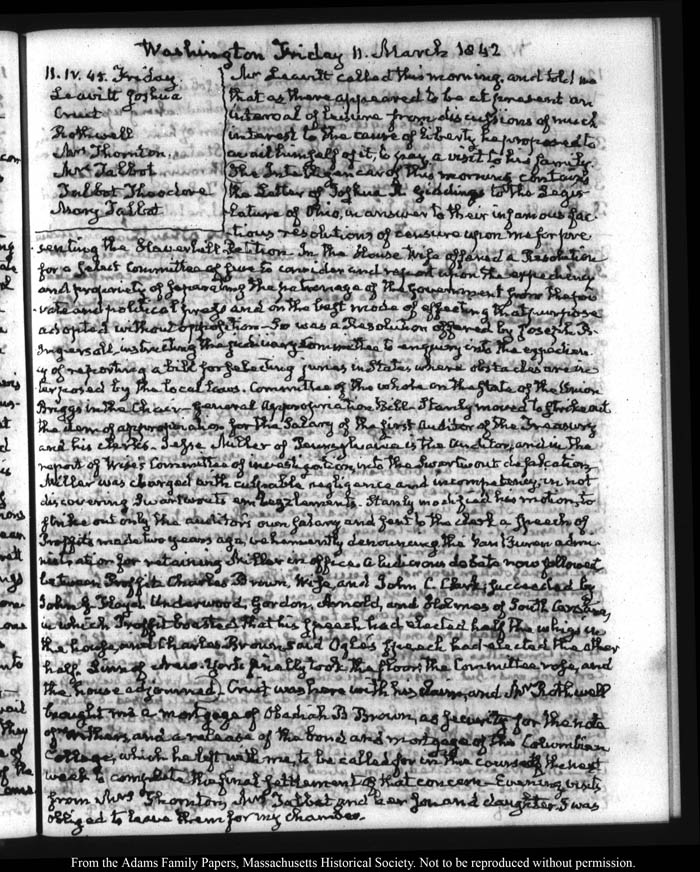 Washington Friday 11. March 1842
11. IV. 45. Friday
Leavitt Joshua
Cruit
Rothwell
Mrs Thornton.
Mrs Talbot
Talbot Theodore
Mary Talbot
Mr Leavitt called this morning, and told me
that as there appeared to be at present an
interval of leisure from discussions of much
interest to the cause of liberty he proposed to
avail himself of it, to pay a visit to his family.
The Intelligencer of this morning contains
the Letter of Joshua R. Giddings to the Legis-
lature of Ohio, in answer to their infamous fac-
tious resolutions of censure upon me for pre-
senting the Haverhill Petition. In the House Wise offered a Resolution
for a Select Committee of five to consider and report upon the expediency
and propriety of separating the patronage of the Government from the pri-
vate and political press and on the best mode of effecting that purpose
adopted without opposition— So was a Resolution offered by Joseph R.
Ingersoll, instructing the judiciary Committee to enquire into the expedien-
cy of reporting a bill for selecting juries in States where obstacles are in-
terposed by the local laws. Committee of the whole on the State of the Union
Briggs in the Chair— General Appropriation Bill. Stanly moved to strike out
the item of appropriation for the Salary of the first Auditor of the Treasury
and his clerks. Jesse Miller of Pennsylvania is the Auditor, and in the
report of Wise's Committee of investigation, into the Swartwout defalcation,
Miller was charged with culpable negligence and incompetency, in not
discovering Swartwout's embezzlements. Stanly modified his motion, to
strike out only the auditor's own salary and sent to the clerk a speech of
Proffit's made two years ago, vehemently denouncing the Van Buren admi-
nistration for retaining Miller in office. A ludicrous debate now followed
between Proffit, Charles Brown, Wise, and John C. Clark; succeeded by
John G. Floyd, Underwood, Gordon, Arnold, and Holmes of South Carolina,
in which Proffit boasted that his speech had elected half the whigs in
the house, and Charles Brown said Ogle's speech had elected the other
half. Linn of New-York finally took the floor, the Committee rose, and
the house adjourned. Cruit was here with his claim, and Mr Rothwell
brought me a mortgage of Obadiah B Brown, as security for the note
of Withers, and a release of the bond and mortgage of the Columbian
College, which he left with me, to be called for in the course of the next
week to complete the final settlement of that concern— Evening visits
from Mrs Thornton, Mrs Talbot and her son and daughter. I was
obliged to leave them for my chamber.
From the Adams Family Papers, Massachusetts Historical Society. Not to be reproduced without permission.